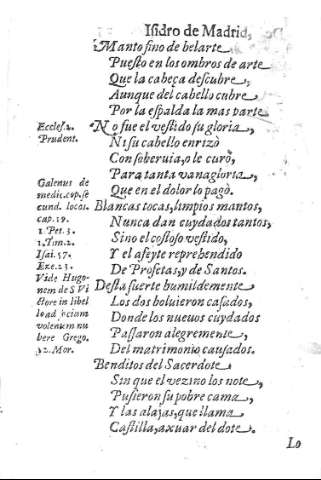 Isidro de Madrid,
Manto fino de belarte
Puesto en los ombros de arte
Que la cabeça descubre,
Aunque del cabello cubre
Por la espalda la mas parte
Eccles.2.
Prudent.
No fue el vestido su gloria,
Ni su cabello enrizò
Con soberuia, o le curò,
Para tanta vanagloria,
Que en el dolor lo pagò.
Galenus de
medic.cop.se
cund. locos.
cap.19.
1.Pet.3.
1.Tim.2.
Isai.57.
Eze.23.
Vide Hugo-
nem de S Vi
ctore in libel
lo ad
volentem nu
bere Grego.
32.Mor.
Blancas tocas, limpios mantos,
Nunca dan cuydados tantos,
Sino el costoso vestido,
Y el afeyte reprehendido
De Profetas, y de Santos.
Desta suerte humildemente
Los dos boluieron casados,
Donde los nueuos cuydados
Passaron alegremente,
Del matrimonio causados.
Benditos del Sacerdote
Sin que el vezino los note,
Pusieron su pobre cama,
Y las alajas, que llama
Castilla, axuar del dote.
Lo